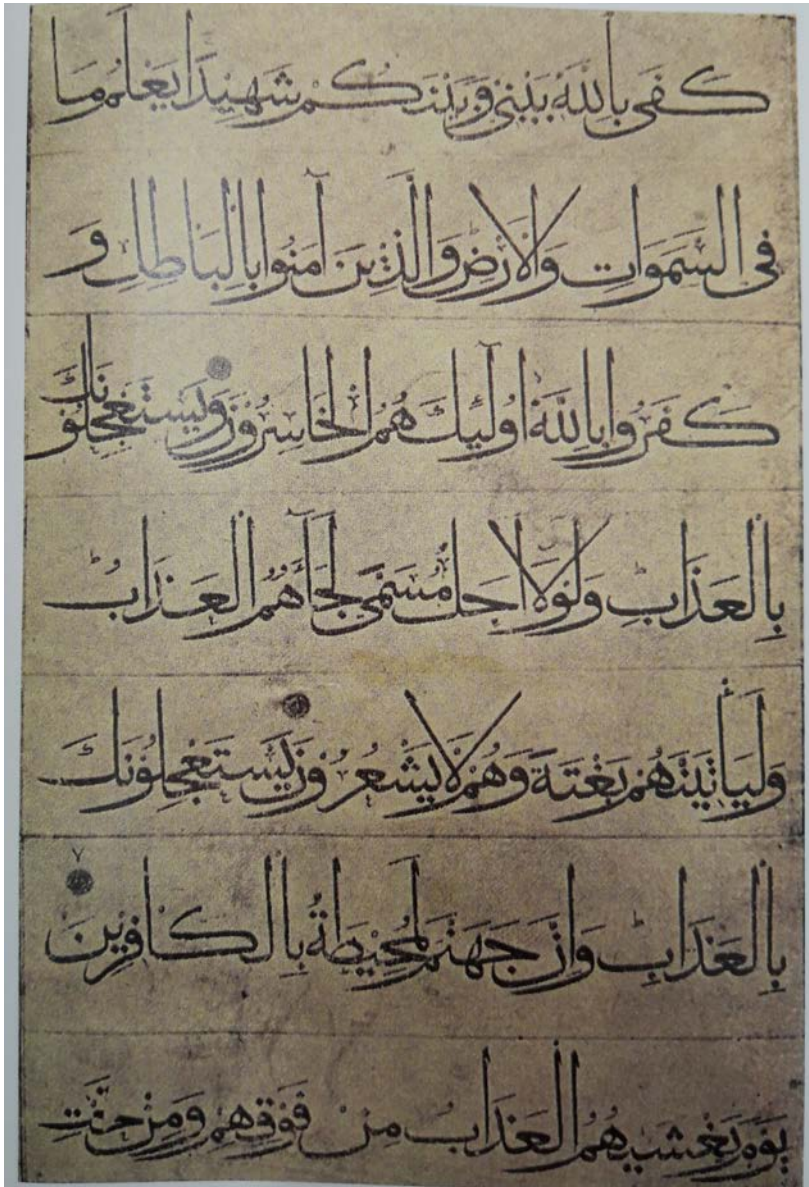 كَفَى بِاللهِ بَيْنِي وَبَيْنَكُمْ شَهِيدًا يَعْلَمُ مَا
فِي السَّمَوَاتِ وَالْاَرْضِ وَالَّذِينَ آمَنُوا بِالْبَاطِلِ وَ
كَفَرُوا بِاللهِ اُولَئِكَ هُمُ الْخَاسِرُونَ وَيَسْتَعْجِلُونَكَ
بِالْعَذَابِ وَلَوْلَا اَجَلٌ مُسَمًّى لَجَآءَهُمُ الْعَذَابُ
وَلَيَأْتِيَنَّهُمْ بَغْتَةً وَهُمْ لَا يَشْعُرُونَ يَسْتَعْجِلُونَكَ
بِالْعَذَابِ وَاِنَّ جَهَنَّمَ لَمُحِيطَةٌ بِالْكَافِرِينَ ٧
يَوْمَ يَغْشَيهُمُ الْعَذَابُ مِنْ فَوْقِهِمْ وَمِنْ تَحْتِ